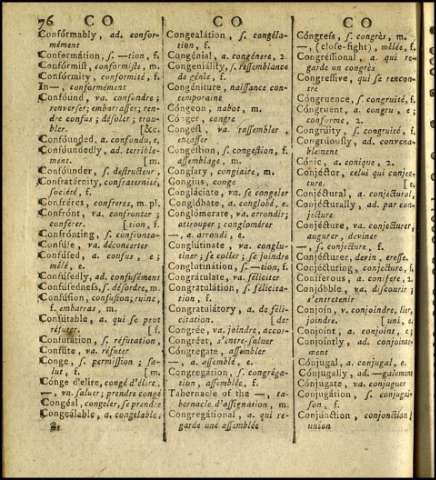 76 CO
CO
CO
Confórmably, ad. confor-
mément
Conformátion, ſ. —tion, f.
Confórmiſt, conformiſte, m.
Confórmity, conformité, f.
In—, conformément
Confóund, va. confondre;
renverſer; embarraſſer; ren-
dre confus; déſoler; trou-
bler. [&c.
Confóunded, a. confondu, e,
Confóundedly, ad. terrible-
ment. [m.
Confóunder, ſ. deſtructeur,
Confratérnity, confraternité,
ſociété, f.
Confréres, confreres, m. pl.
Confrónt, va. confronter;
conférer. [tion, f.
Confrónting, ſ. confronta-
Confúſe, va. déconcerter
Confúſed, a. confus, e;
mêlé, e.
Confúſedly, ad. confuſément
Confúſedneſs, ſ. déſordre, m.
Confúſion, confuſion, ruine,
f. embarras, m.
Confútable, a. qui ſe peut
réfuter. [f.
Confutátion, ſ. réfutation,
Confúte, va. réfuter
Conge, ſ. permiſſion; ſa-
lut, f. [m.
Conge d'elire, congé d'élire,
—, vn. ſaluer; prendre congé
Congéal, congeler, ſe prendre
Congéalable, a. congélable,
Congealátion, ſ. congéla-
tion, f.
Congénial, a. congénere, 2.
Congeniálity, ſ. reſſemblance
de génie, f.
Congéniture, naiſſance con-
temporaine
Cóngeon, nabot, m.
Cónger, congre
Congéſt, va. raſſembler,
entaſſer
Congéſtion, ſ. congeſtion, f.
aſſemblage, m.
Cóngiary, congiaire, m.
Cóngius, conge
Conglāciate, vn. ſe congeler
Conglóbate, a. conglobé, e.
Conglómerate, va. arrondir;
attrouper; conglomérer
—, a. arrondi, e.
Conglútinate, va. conglu-
tiner; ſe coller; ſe joindre
Conglutinátion, ſ. —tion, f.
Congrátulate, va. féliciter
Congratulátion, ſ. félicita-
tion, f.
Congrátulatory, a. de féli-
citation. [der
Congrée, vn. joindre, accor-
Congréet, s'entre-ſaluer
Cóngregate, aſſembler
—, a. aſſemblé, e.
Congregátion, ſ. congréga-
tion, aſſemblée, f.
Tabernacle of the —, ta-
bernacle d'aſſignation, m.
Congregátional, a. qui re-
garde une aſſemblée
Cóngreſs, ſ. congrès, m.
—, (cloſe-fight), mêlée, f.
Congréſſional, a. qui re-
garde un congrès
Congréſſive, qui ſe rencon-
tre
Cóngruence, ſ. congruité, f.
Cóngruent, a. congru, e;
conforme, 2.
Congrúity, ſ. congruité, f.
Cóngruouſly, ad. convena-
blement
Cónic, a. conique, 2.
Conjéctor, celui qui conjec-
ture. [e.
Conjéctural, a. conjectural,
Conjécturally, ad. par con-
jecture
Conjécture, va. conjecturer,
augurer, deviner
—, ſ. conjecture, f.
Conjécturer, devin, ereſſe.
Conjécturing, conjecture, f.
Coníferous, a. conifere, 2.
Conjóbble, va. diſcourir;
s'entretenir
Conjoin, v. conjoindre, lier,
joindre. [uni, e.
Conjoint, a. conjoint, e;
Conjointly, ad. conjointe-
ment
Cónjugal, a. conjugal, e.
Cónjugally, ad. —galement
Cónjugate, va. conjuguer
Conjugátion, ſ. conjugai-
ſon, f.
Conjúnction, conjonction;
union